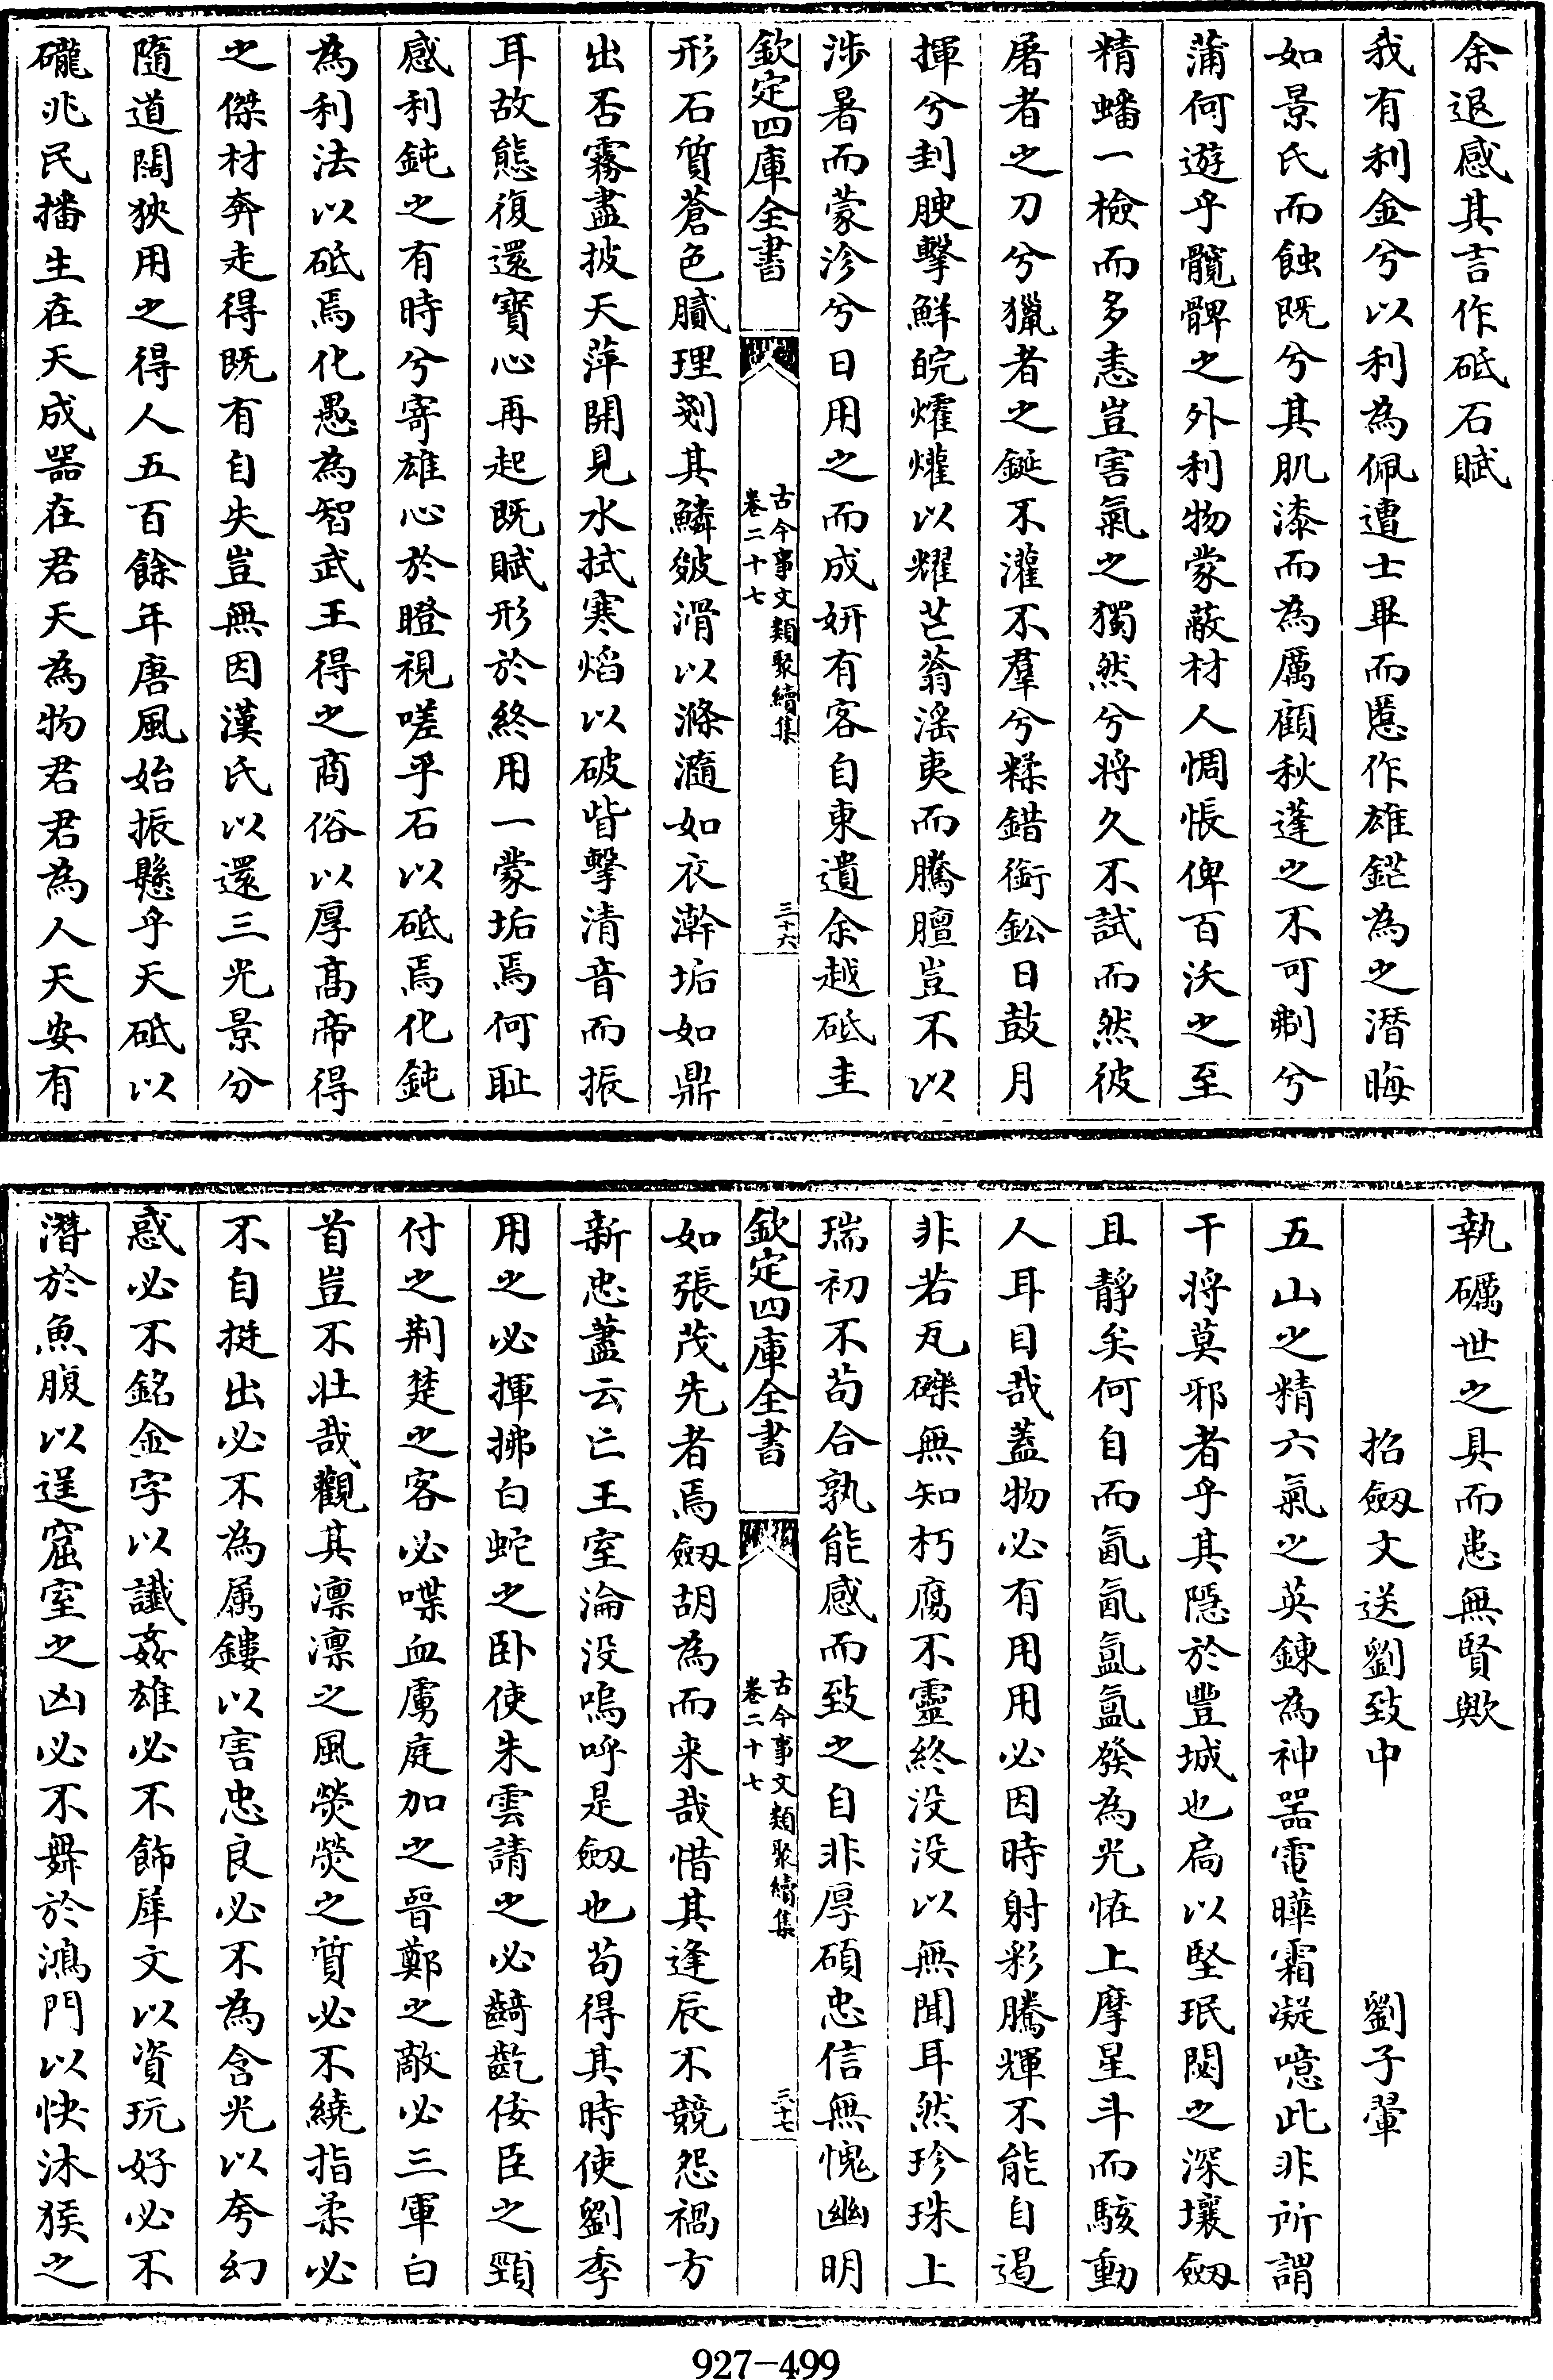 余退感其言作砥石賦
我有利金兮以利為佩遭土畢而慝作雄鋩為之潛晦
如景氏而蝕既兮其肌漆而為厲顧秋蓬之不可剸兮
蒲何遊乎髖髀之外利物蒙蔽材人惆悵俾百沃之至
精蟠一檢而多恚豈害氣之獨然兮將久不試而然彼
屠者之刀兮獵者之鋋不灌不羣兮糅錯銜鈆日鼓月
揮兮刲腴擊鮮皖燿爟以耀芒蓊滛夷而騰膻豈不以
涉暑而蒙沴兮日用之而成妍有客自東遺余越砥圭
欽定四庫全書
古今事文類聚續集
卷二十七
三十六
形石質蒼色膩理剡其鱗皴滑以滌瀡如衣澣垢如鼎
出否霧盡披天萍開見水拭寒焰以破眥擊清音而振
耳故態復還寳心再起既賦形於終用一蒙垢焉何耻
感利鈍之有時兮寄雄心於瞪視嗟乎石以砥焉化鈍
為利法以砥焉化愚為智武王得之商俗以厚髙帝得
之傑材奔走得既有自失豈無因漢氏以還三光景分
隨道闊狹用之得人五百餘年唐風始振懸乎天砥以
礲兆民播生在天成噐在君天為物君君為人天安有
執礪世之具而患無賢歟
招劔文送劉致中 劉子翬
五山之精六氣之英錬為神噐電曄霜凝噫此非所謂
干将莫邪者乎其隱於豐城也扃以堅珉閟之深壤劔
且靜矣何自而氤氤氳氳發為光怪上摩星斗而駭動
人耳目哉蓋物必有用用必因時射彩騰輝不能自遏
非若瓦礫無知朽腐不靈終没没以無聞耳然珍珠上
瑞初不苟合孰能感而致之自非厚碩忠信無愧幽明
欽定四庫全書
古今事文類聚續集
卷二十七
三十七
如張茂先者焉劔胡為而来哉惜其逢辰不競怨禍方
新忠藎云亡王室淪没嗚呼是劔也苟得其時使劉季
用之必揮拂白蛇之卧使朱雲請之必齮齕佞臣之頸
付之荆楚之客必喋血虜庭加之晉鄭之敵必三軍白
首豈不壯哉觀其凛凛之風熒熒之質必不繞指柔必
不自挺出必不為属鏤以害忠良必不為含光以夸幻
惑必不銘金字以讖姦雄必不飾犀文以資玩好必不
潛於魚腹以逞窟室之凶必不舞於鴻門以快沐猴之
927-499